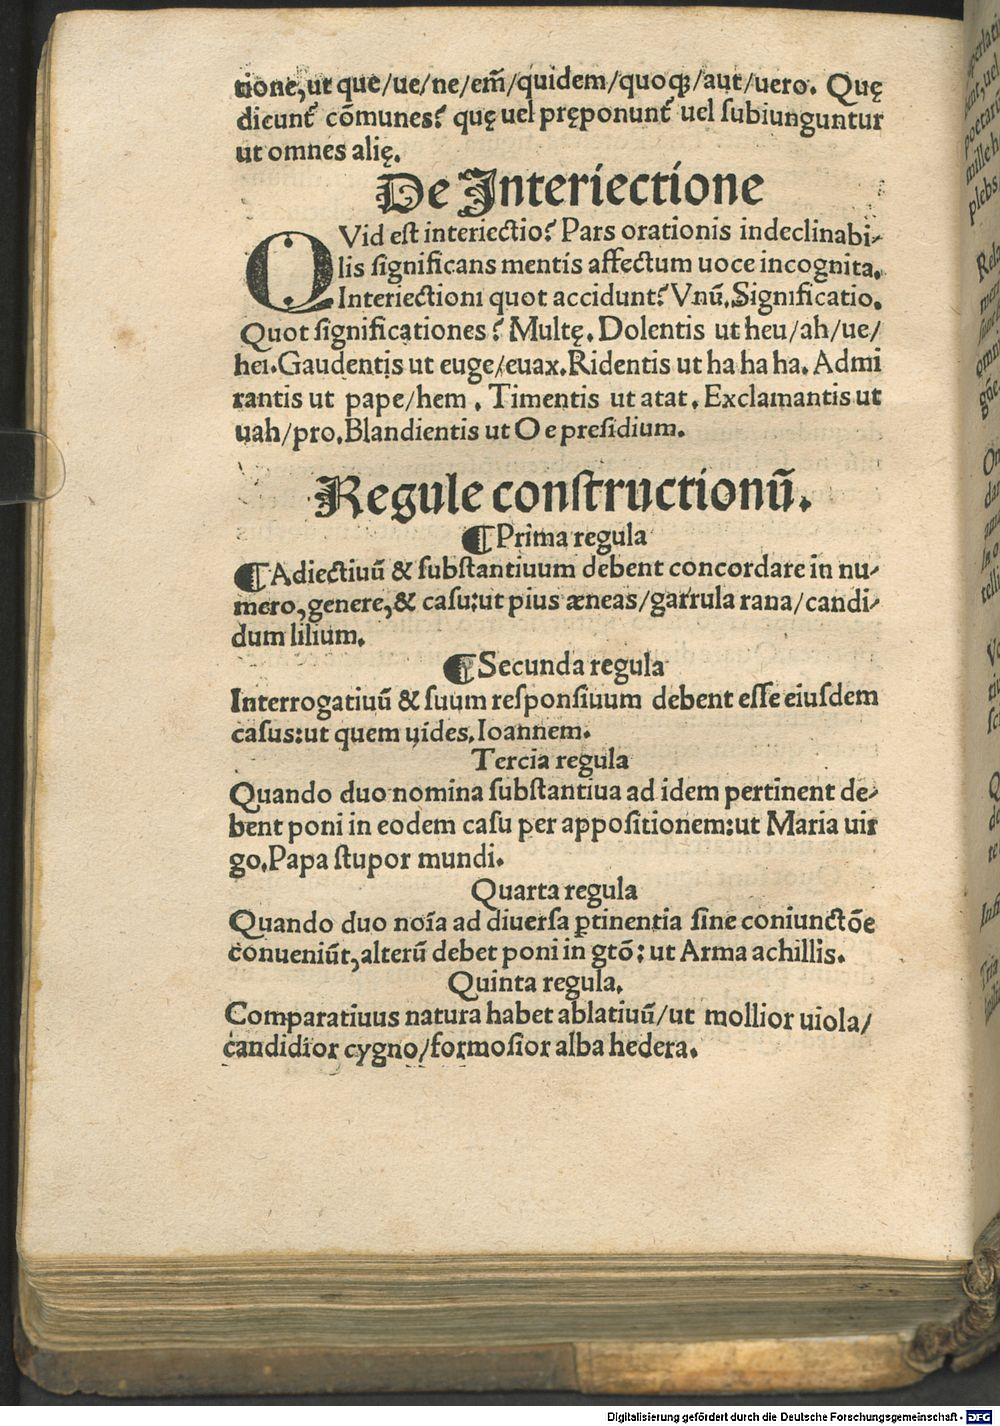 tione, ut que/ue/ne/em̃/quidem/quoqꝫ/aut/uero. Quę
dicunt᷑ cõmunes? quę uel pręponunt᷑ uel subiunguntur
ut omnes alię.
De Interiectione
QVid est interiectio? Pars orationis indeclinabi-
lis significans mentis affectum uoce incognita.
Interiectioni quot accidunt? Vnũ. Significatio.
Quot significationes? Multę. Dolentis ut heu/ah/ue/
hei. Gaudentis ut euge/euax. Ridentis ut ha ha ha. Admi
rantis ut pape/hem. Timentis ut atat. Exclamantis ut
uah/pro. Blandientis ut O e presidium.
Regule constructionũ.
¶Prima regula
¶Adiectiuũ & substantiuum debent concordare in nu-
mero, genere, & casu: ut pius æneas/garrula rana/candi-
dum lilium.
¶Secunda regula
Interrogatiuũ & suum responsiuum debent esse eiusdem
casus: ut quem uides. Ioannem.
Tercia regula
Quando duo nomina substantiua ad idem pertinent de-
bent poni in eodem casu per appositionem: ut Maria uir
go. Papa stupor mundi.
Quarta regula
Quando duo noĩa ad diuersa ꝑtinentia sine coniunctõe
conueniũt, alterũ debet poni in gtõ: ut Arma achillis.
Quinta regula.
Comparatiuus natura habet ablatiuũ/ut mollior uiola/
candidior cygno/formosior alba hedera.
poetarũ
mille h
plebs
omni
Digitalisierung gefördert durch die Deutsche Forschungsgemeinschaft - DFG